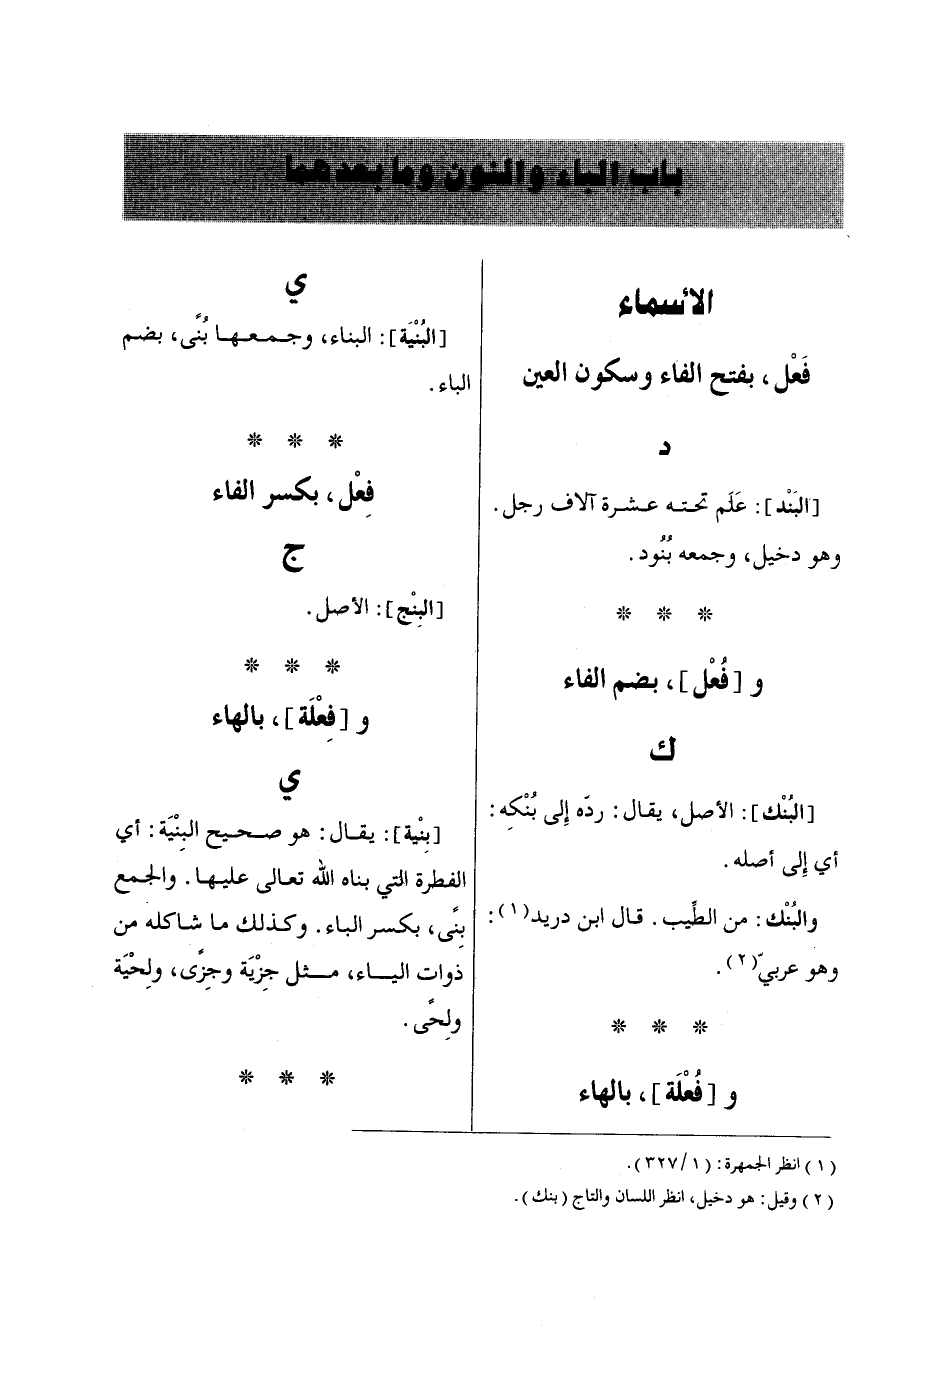 باب الباء والنون وما بعدهما
الأسماء
فَعْل، بفتح الفاء وسكون العين
د
[البَنْد]: عَلَم تحته عشرة آلاف رجل.
وهو دخيل، وجمعه بُنُود.
* * *
و [فُعْل]، بضم الفاء
ك
[البُنْك]: الأصل، يقال: ردّه إلى بُنْكِه:
أي إلى أصله.
والبُنْك: من الطِّيب. قال ابن دريد(١):
وهو عربيّ(٢).
* * *
و [فُعْلَة]، بالهاء
ي
[البُنْيَة]: البناء، وجمعها بُنًى، بضم
الباء.
* * *
فِعْل، بكسر الفاء
ج
[البِنْج]: الأصل.
* * *
و [فِعْلَة]، بالهاء
ي
[بِنْية]: يقال: هو صحيح البِنْيَة: أي
الفطرة التي بناه الله تعالى عليها. والجمع
بِنًى، بكسر الباء. وكذلك ما شاكله من
ذوات الياء، مثل جِزْيَة وجِزًى، ولِحْيَة
ولِحًى.
* * *
(١) انظر الجمهرة: (١/ ٣٢٧).
(٢) وقيل: هو دخيل، انظر اللسان والتاج (بنك).